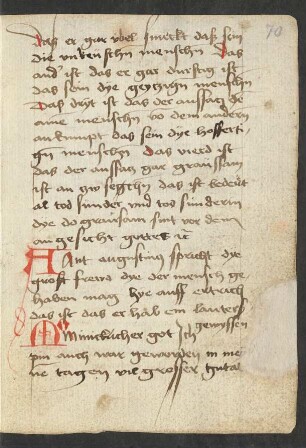 70
das er gar vbel smeckt das sein
die vnkeuschn menschn Das
and' ist das er gar durstig ist
das sein dye geytzign menschn
Das dryt ist das der aussatz de
eine menschn vo dem andern
ankumpt das sein dye hofferti
gn menschn Das vierd ist
das der aussatz gar graussam
ist an zw sehen das ist bedeut
al tod sunder vnd tod sunderin
dye do graussam sint vor dem
angesicht gottes
Sant augustinus spricht dye
grost frewd dye der mensch ge
haben mag hye auff ertrich
das ist das er hab ein lauters
gewyssen
Mynnicklicher got Ich
pin auch war geworden in mei
nen tagen vil grosser